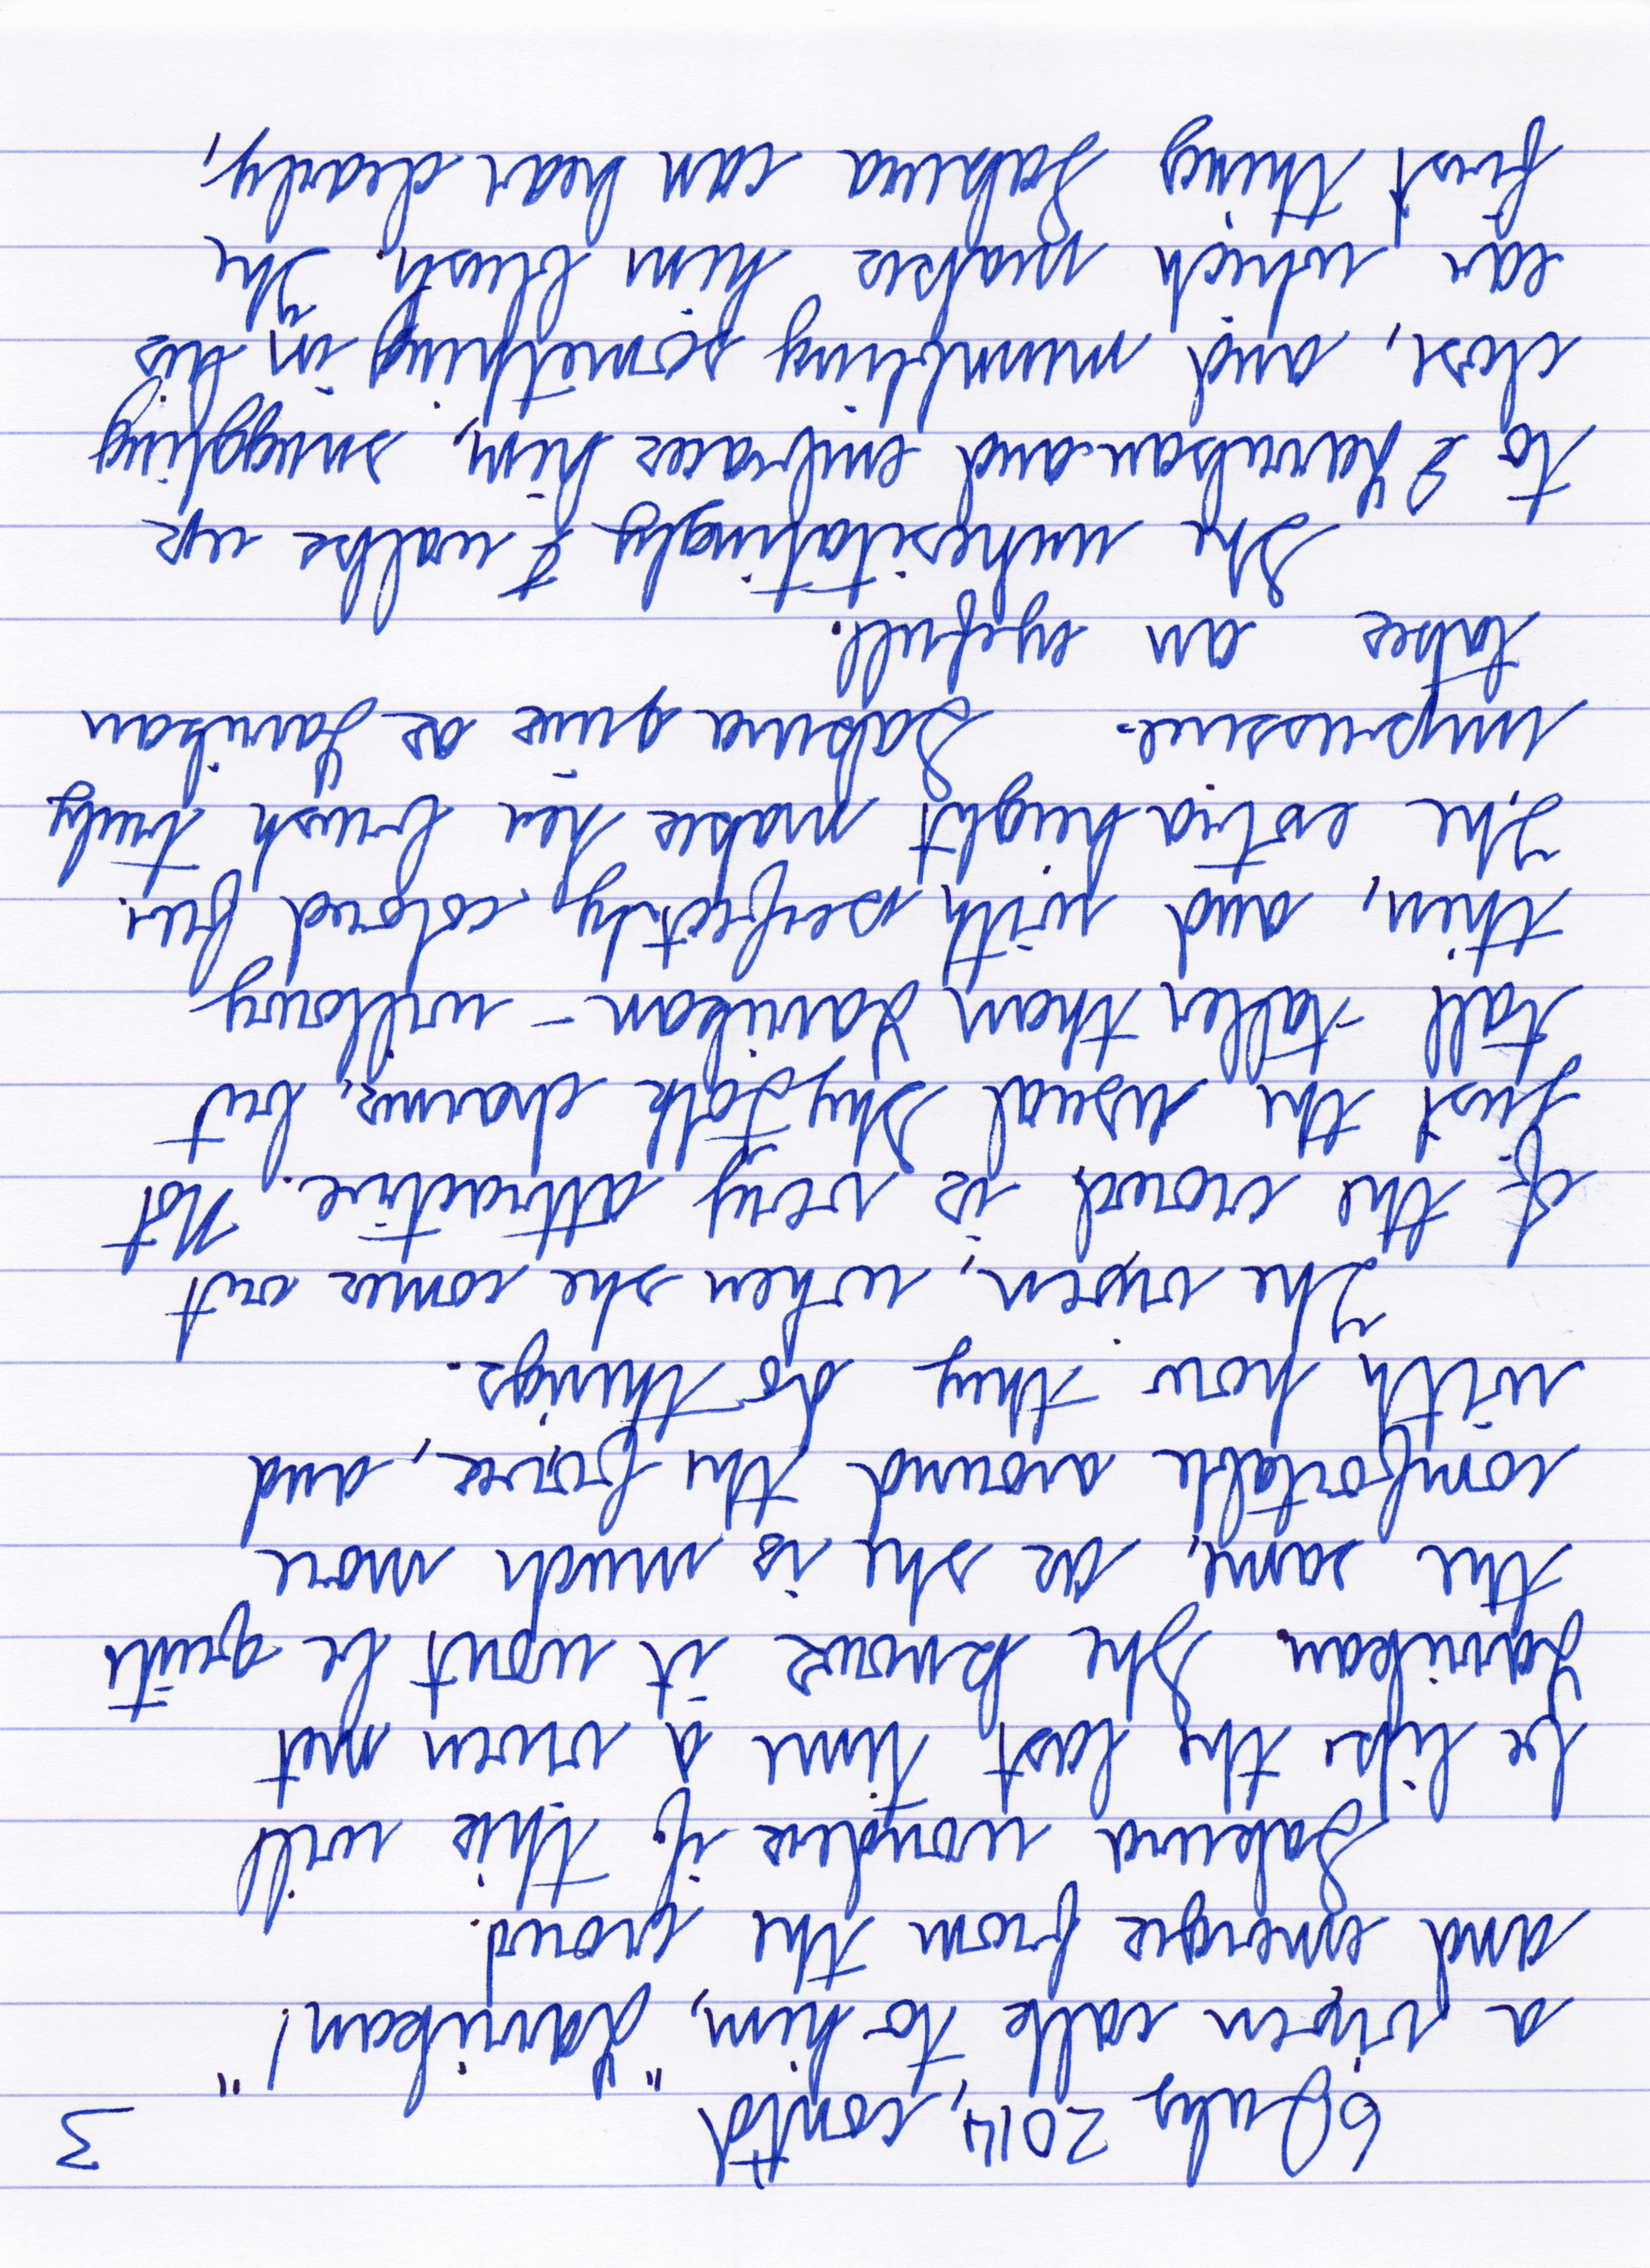 6 July 2014, cont'd 3
a vixen calls to him, "Larrikan!"
and emerges from the crowd.
Sakura wonders if this will
be like the last time a vixen met
Larrikan. She knows it won't be quite
the same, as she is much more
comfortable around the foxes, and
with how they do things.
The vixen, when she comes out
of the crowd, is very attractive. Not
just the usual Skyfolk charms, but
tall - taller than Larrikan - willowy
thin, and with perfectly colored fur.
The extra height makes her brush truly
impressive. Sakura gives as Larrikan
takes an eyefull.
She unhesitatingly walks up
to Larrikan and embraces him, snuggling
close, and mumbling something in his
ear which makes him blush. The
first thing Sakura can hear clearly,